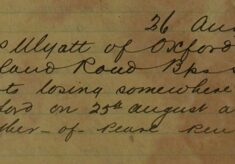 26 Au
Wyatt of Oxford
land Road Bps
to losing somewhere
ford on 25th august a
ther-of-Pearl